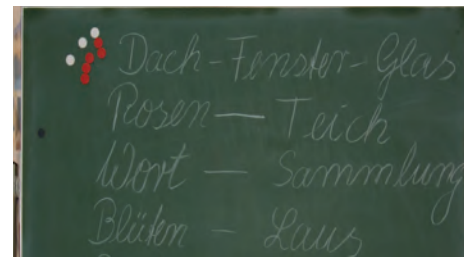 Dach-Fenster-Glas
Rosen — Teich
Wort — Sammlung
Blüten — Laus